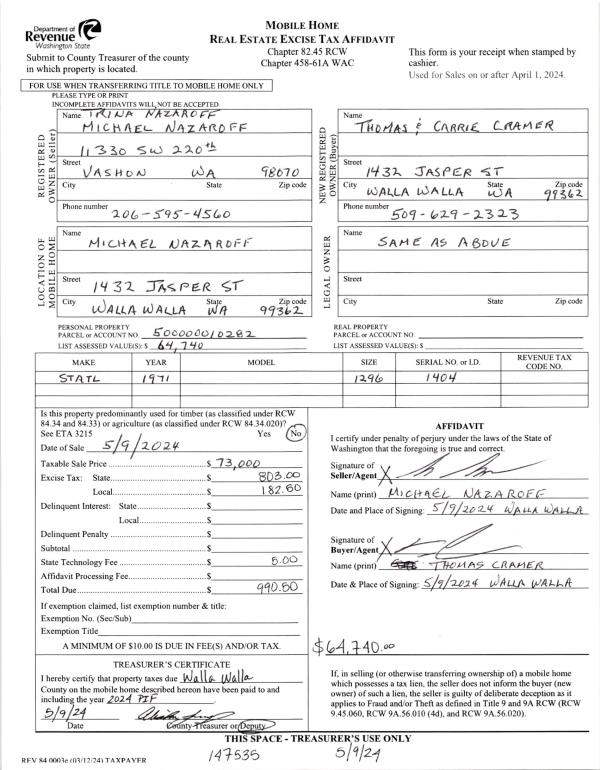 Department of
Revenue
Washington State
Submit to County Treasurer of the county
in which property is located.
MOBILE HOME
REAL ESTATE EXCISE TAX AFFIDAVIT
Chapter 82.45 RCW
Chapter 458-61A WAC
This form is your receipt when stamped by
cashier.
Used for Sales on or after April 1, 2024.
FOR USE WHEN TRANSFERRING TITLE TO MOBILE HOME ONLY
PLEASE TYPE OR PRINT
INCOMPLETE AFFIDAVITS WILL NOT BE ACCEPTED
REGISTERED
OWNER (Seller)
Name TRINA NAZAROFF
MICHAEL NAZAROFF
11330 SW 220th
Street
VASHON WA 98070
City State Zip code
Phone number
206-595-4560
NEW REGISTERED
OWNER (Buyer)
Name
THOMAS & CARRIE CRAMER
Street
1432 JASPER ST
City State Zip code
WALLA WALLA WA 99362
Phone number
509-629-2323
LOCATION OF
MOBILE HOME
Name
MICHAEL NAZAROFF
Street
1432 JASPER ST
City State Zip code
WALLA WALLA WA 99362
LEGAL OWNER
Name
SAME AS ABOVE
Street
City State Zip code
PERSONAL PROPERTY
PARCEL or ACCOUNT NO. 500000010282
LIST ASSESSED VALUE(S): $ 64,740
REAL PROPERTY
PARCEL or ACCOUNT NO.
LIST ASSESSED VALUE(S): $
MAKE YEAR MODEL SIZE SERIAL NO. or I.D. REVENUE TAX
CODE NO.
STATL 1971 1296 1404
Is this property predominantly used for timber (as classified under RCW
84.34 and 84.33) or agriculture (as classified under RCW 84.34.020)?
See ETA 3215 Yes No
Date of Sale 5/9/2024
Taxable Sale Price $ 73,000
Excise Tax: State $ 803.00
Local $ 182.50
Delinquent Interest: State $
Local $
Delinquent Penalty $
Subtotal $
State Technology Fee $ 5.00
Affidavit Processing Fee $
Total Due $ 990.50
If exemption claimed, list exemption number & title:
Exemption No. (Sec/Sub)
Exemption Title
A MINIMUM OF $10.00 IS DUE IN FEE(S) AND/OR TAX.
TREASURER'S CERTIFICATE
I hereby certify that property taxes due Walla Walla
County on the mobile home described hereon have been paid to and
including the year 2024 PIF
5/9/24
Date County Treasurer or Deputy
AFFIDAVIT
I certify under penalty of perjury under the laws of the State of
Washington that the foregoing is true and correct.
Signature of
Seller/Agent X
Name (print) MICHAEL NAZAROFF
Date and Place of Signing: 5/9/2024 WALLA WALLA
Signature of
Buyer/Agent X
Name (print) THOMAS CRAMER
Date & Place of Signing: 5/9/2024 WALLA WALLA
$64,740.00
If, in selling (or otherwise transferring ownership of) a mobile home
which possesses a tax lien, the seller does not inform the buyer (new
owner) of such a lien, the seller is guilty of deliberate deception as it
applies to Fraud and/or Theft as defined in Title 9 and 9A RCW (RCW
9.45.060, RCW 9A.56.010 (4d), and RCW 9A.56.020).
THIS SPACE - TREASURER'S USE ONLY
147535 5/9/24
REV 84 0003e (03/12/24) TAXPAYER